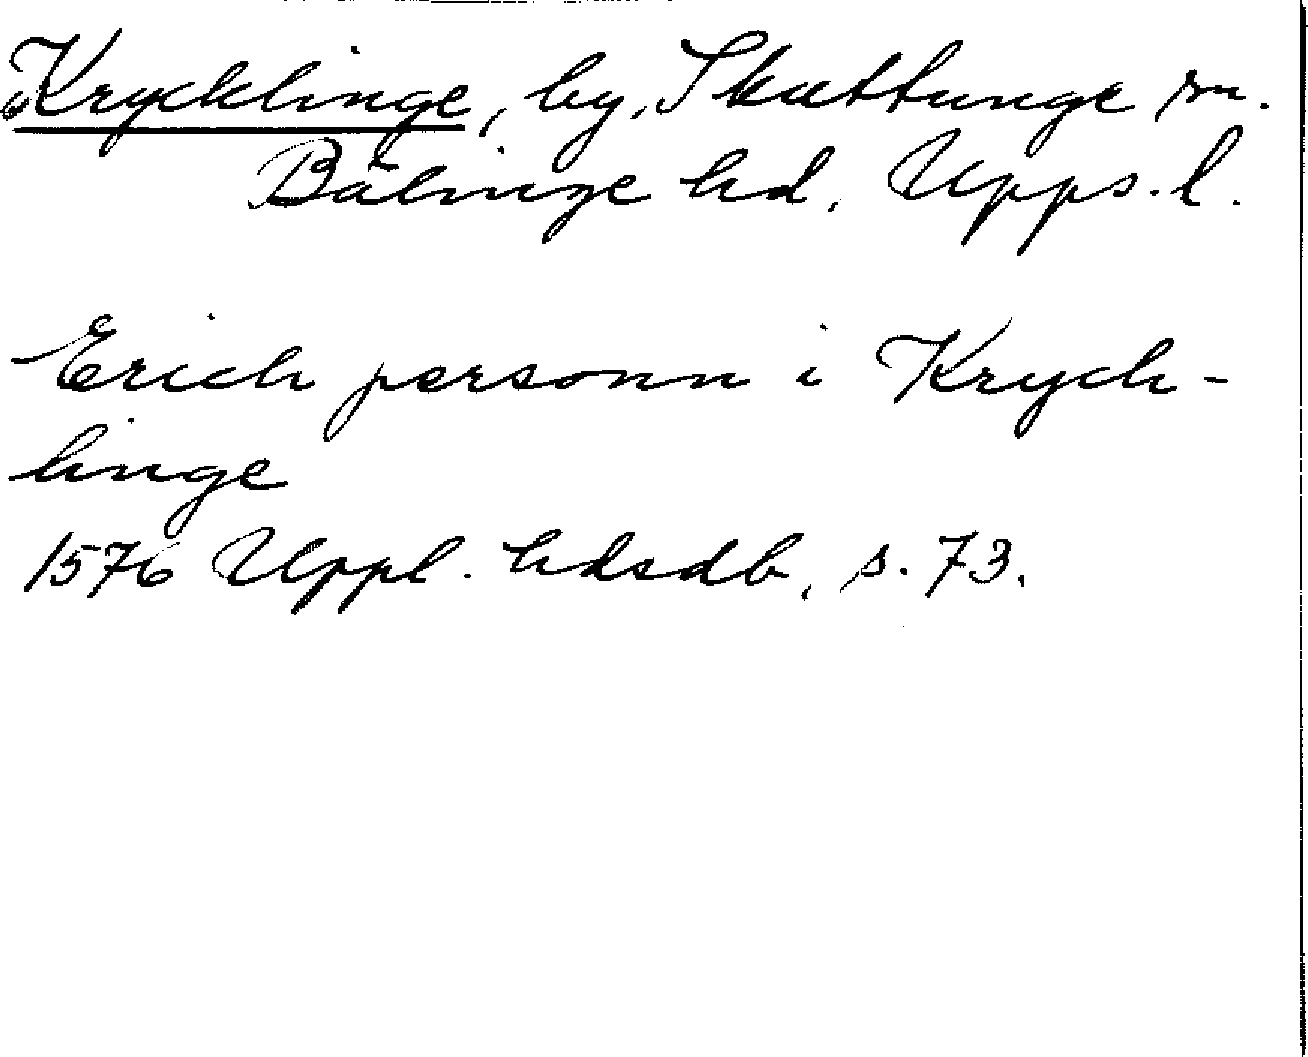 Krycklinge, by, Skuttunge sn.
Bälinge hd, Upps. l.
Erich personn i Krych-
linge
1576 Uppl. hdsdb, s. 73.